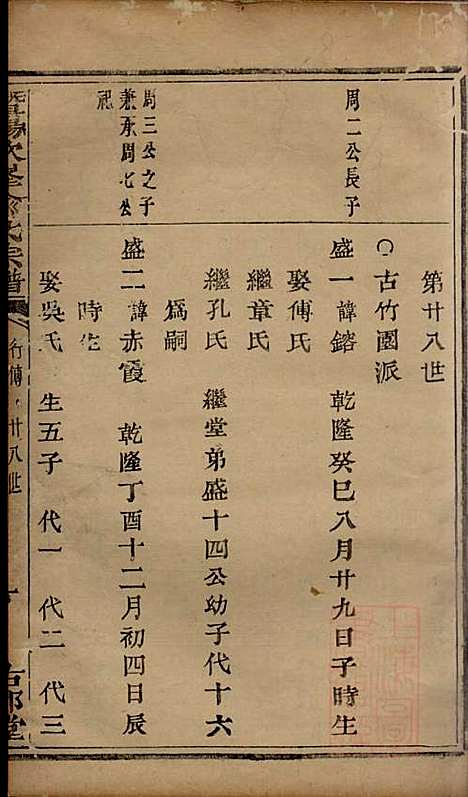 第廿八世
○古竹園派
周二公長子
盛一 諱鎔 乾隆癸巳八月廿九日子時生
娶傅氏
繼章氏
繼孔氏 繼堂弟盛十四公幼子代十六
爲嗣
周三公之子
兼承周七公
祀
盛二 諱赤霞 乾隆丁酉十二月初四日辰
時生
娶吳氏 生五子 代一 代二 代三
暨陽次峯 氏宗譜 行傳 廿八世 堂